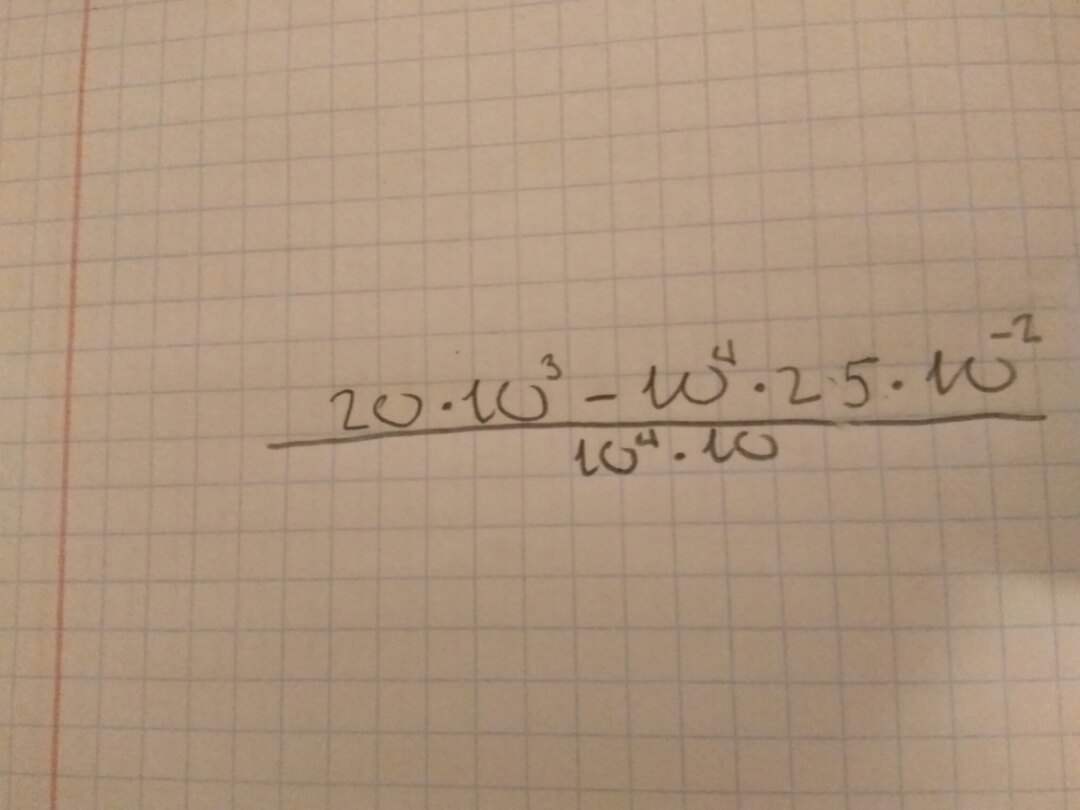 20·10³ - 10⁴·2·5·10⁻²
10⁴·10